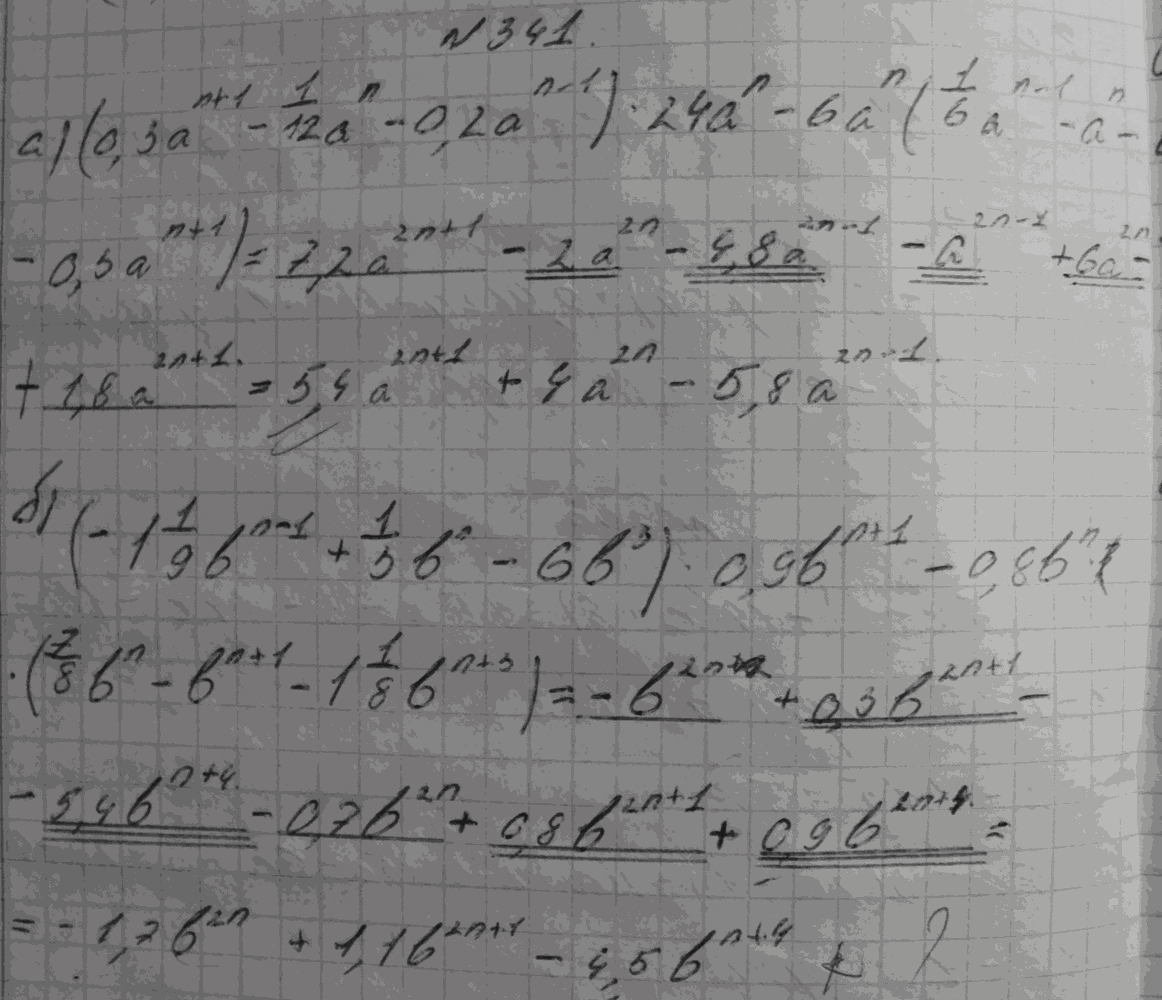 №341.
а) (0,3a^{n+1} - \frac{1}{12}a^{n} - 0,2a^{n-1}) · 24a^{n} - 6a^{n}(\frac{1}{6}a^{n-1} - a^{n} -
- 0,3a^{n+1}) = 7,2a^{2n+1} - 2a^{2n} - 4,8a^{2n-1} - a^{2n-1} + 6a^{2n} -
+ 1,8a^{2n+1} = 5,4a^{2n+1} + 4a^{2n} - 5,8a^{2n-1}.
б) (-1\frac{1}{9}b^{n-1} + \frac{1}{3}b^{n} - 6b^{3}) · 0,9b^{n+1} - 0,8b^{n} ·
· (\frac{7}{8}b^{n} - b^{n+1} - 1\frac{1}{8}b^{n+3}) = - b^{2n} + 0,3b^{2n+1} -
- 5,4b^{n+4} - 0,7b^{2n} + 0,8b^{2n+1} + 0,9b^{2n+} =
= - 1,7b^{2n} + 1,1b^{2n+1} - 4,5b^{n+4} ?